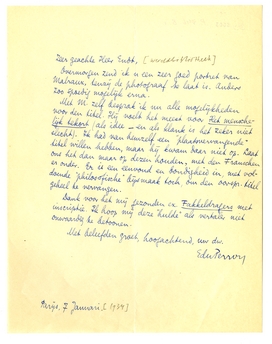 Zeer geachte Heer Endt,
Overmorgen zend ik u een zeer goed portret van
Malraux, tenzij de photograaf te laat is. Anders
zoo spoedig mogelijk erna.
Met M. zelf besprak ik nu alle mogelijkheden
voor den titel. Hij voelt het meest voor Het mensche-
lijk tekort (als idee – en als klank is het zeker niet
slecht). Ik had van hemzelf een "plaatsvervangende"
titel willen hebben, maar hij kwam daar niet op. Laat
ons het dan maar op dezen houden, met den Franschen
er onder. Er is eenvoud en bondigheid in, met vol-
doende "philosofische" bijsmaak toch, om den oorspr. titel
geheel te vervangen.
Dank voor het mij gezonden ex. Fakkeldragers met
inscriptie. Ik hoop mij deze "hulde" als vertaler niet
onwaardig te betoonen.
Met beleefden groet, hoogachtend, uw dw.
EduPerron
Parijs, 7 Januari, [1934]